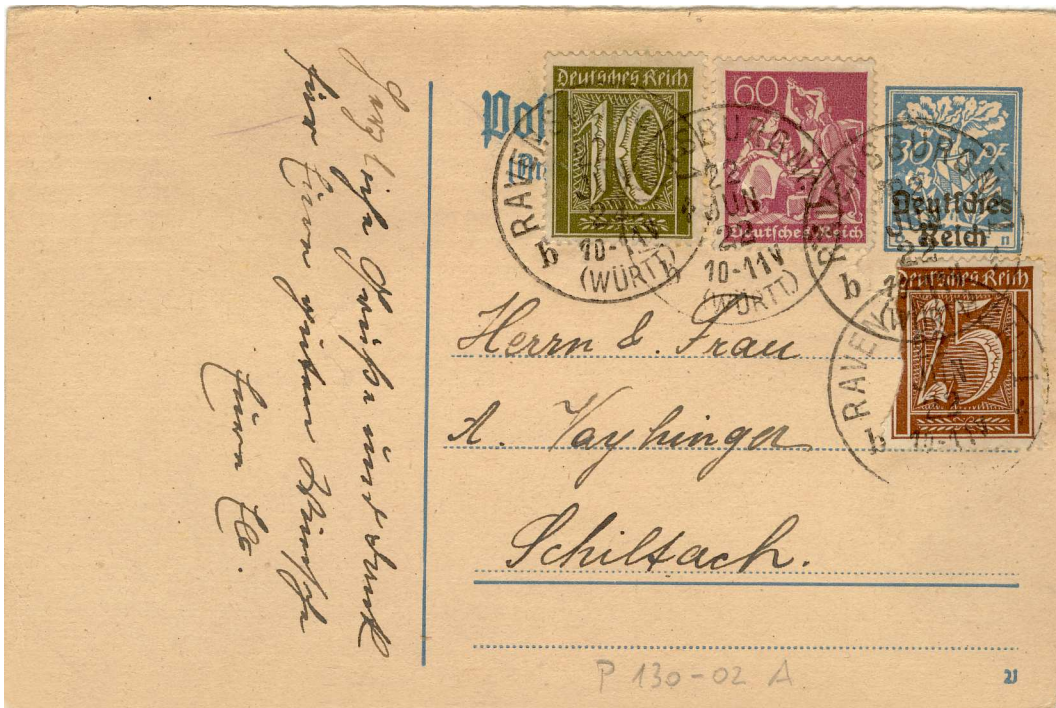 Herzliche Grüße und Dank
für Eure guten Wünsche
Eure
Deutsches Reich
10
60
Deutsches Reich
30 PF
Deutsches
Reich
Deutsches Reich
25
RAVENSBURG
22
JUN
22
10-11V
(WÜRTT)
b
Herrn & Frau
A. Vayhinger
Schiltach.
P 130-02 A
21